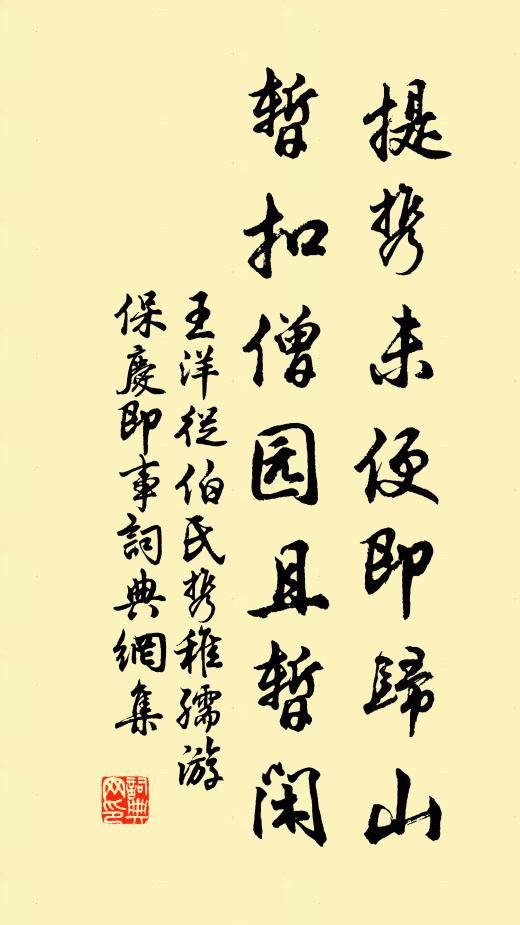 提携未便即歸山
暫扣僧园且暫閑
王洋從伯氏携稚孺游
保慶即事詞典網集
詞典
网印